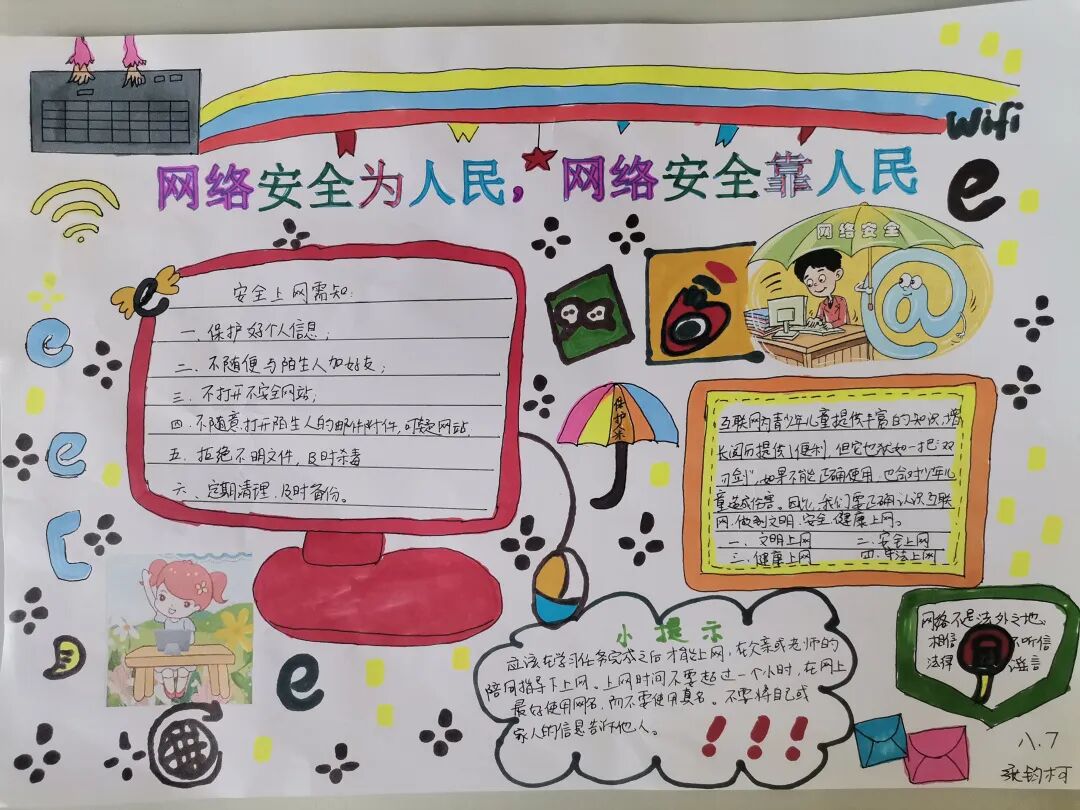 Wifi
网络安全为人民，网络安全靠人民
e
网络安全
@
安全上网需知：
一、保护好个人信息；
二、不随便与陌生人加好友；
三、不打开不安全网站；
四、不随意打开陌生人的邮件附件，可疑网站，
五、拒绝不明文件，及时杀毒
六、定期清理，及时备份。
e
e
e
e
保护伞
互联网为青少年儿童提供丰富的知识，增
长阅历提供便利，但它也犹如一把“双
刃剑”，如果不能正确使用，也会对少年儿
童造成伤害。因此，我们要正确认识互联
网，做到文明、安全、健康上网。
一、文明上网 二、安全上网
三、健康上网 四、守法上网
小提示
应该在学习任务完成之后才能上网，在父亲或老师的
陪同指导下上网。上网时间不要超过一个小时，在网上
最好使用网名，而不要使用真名。不要将自己或
家人的信息告诉他人。
!!!
网络不是法外之地、
相信 不听信
法律 谣言
八.7